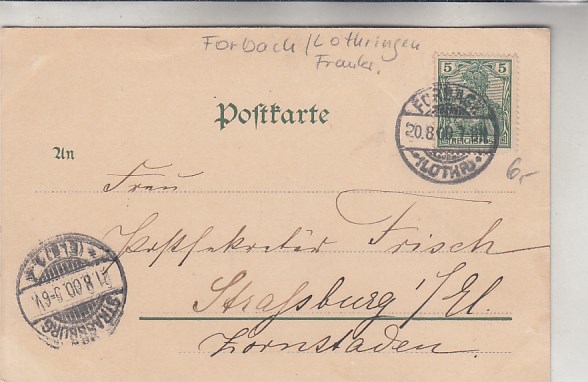 Forbach/Lothringen
Frankr.
5
5
REICHSPOST
FORBACH
20.8.00.7-8N.
*(LOTHR)*
Postkarte
6,-
An
Frau
Postsekretär Frisch
Straßburg i/El.
Zornstaden.
*(ELS.)*
21.8.00.5-6V.
STRASSBURG